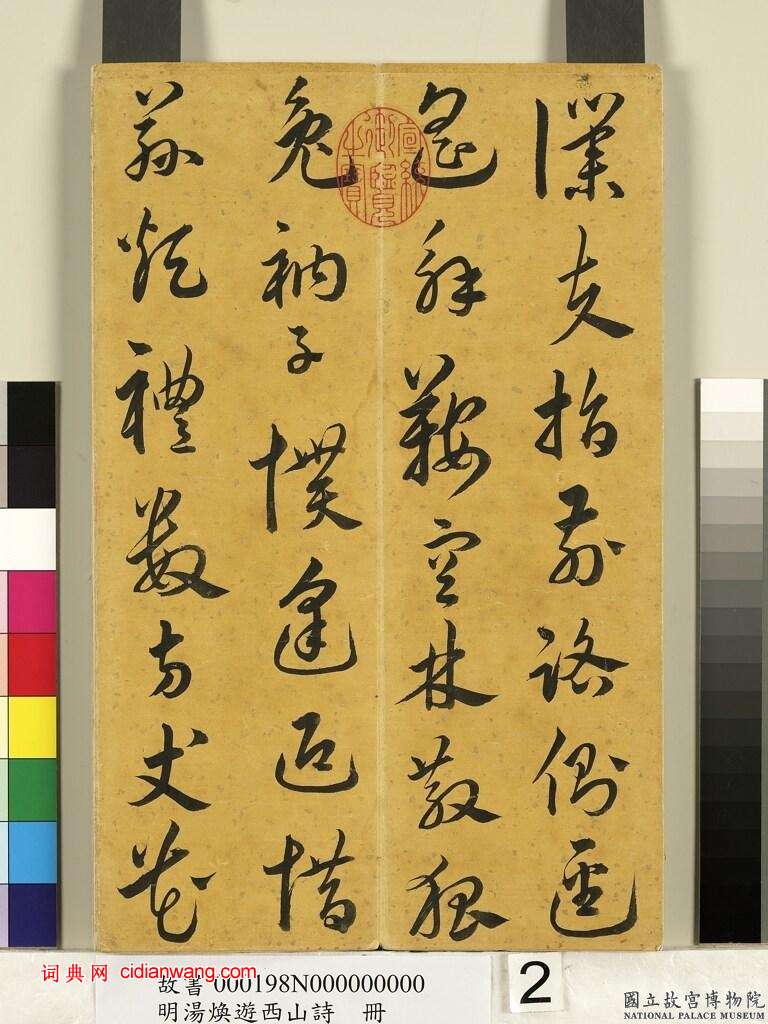 僕夫指前路側逕
忽解鞍空林散狐
兔衲子懽逢迎惜
無禮數方丈花
宣統御覽之寶
词典网 cidianwang.com
故書000198N000000000
明湯煥遊西山詩 冊
2
國立故宮博物院
NATIONAL PALACE MUSEUM